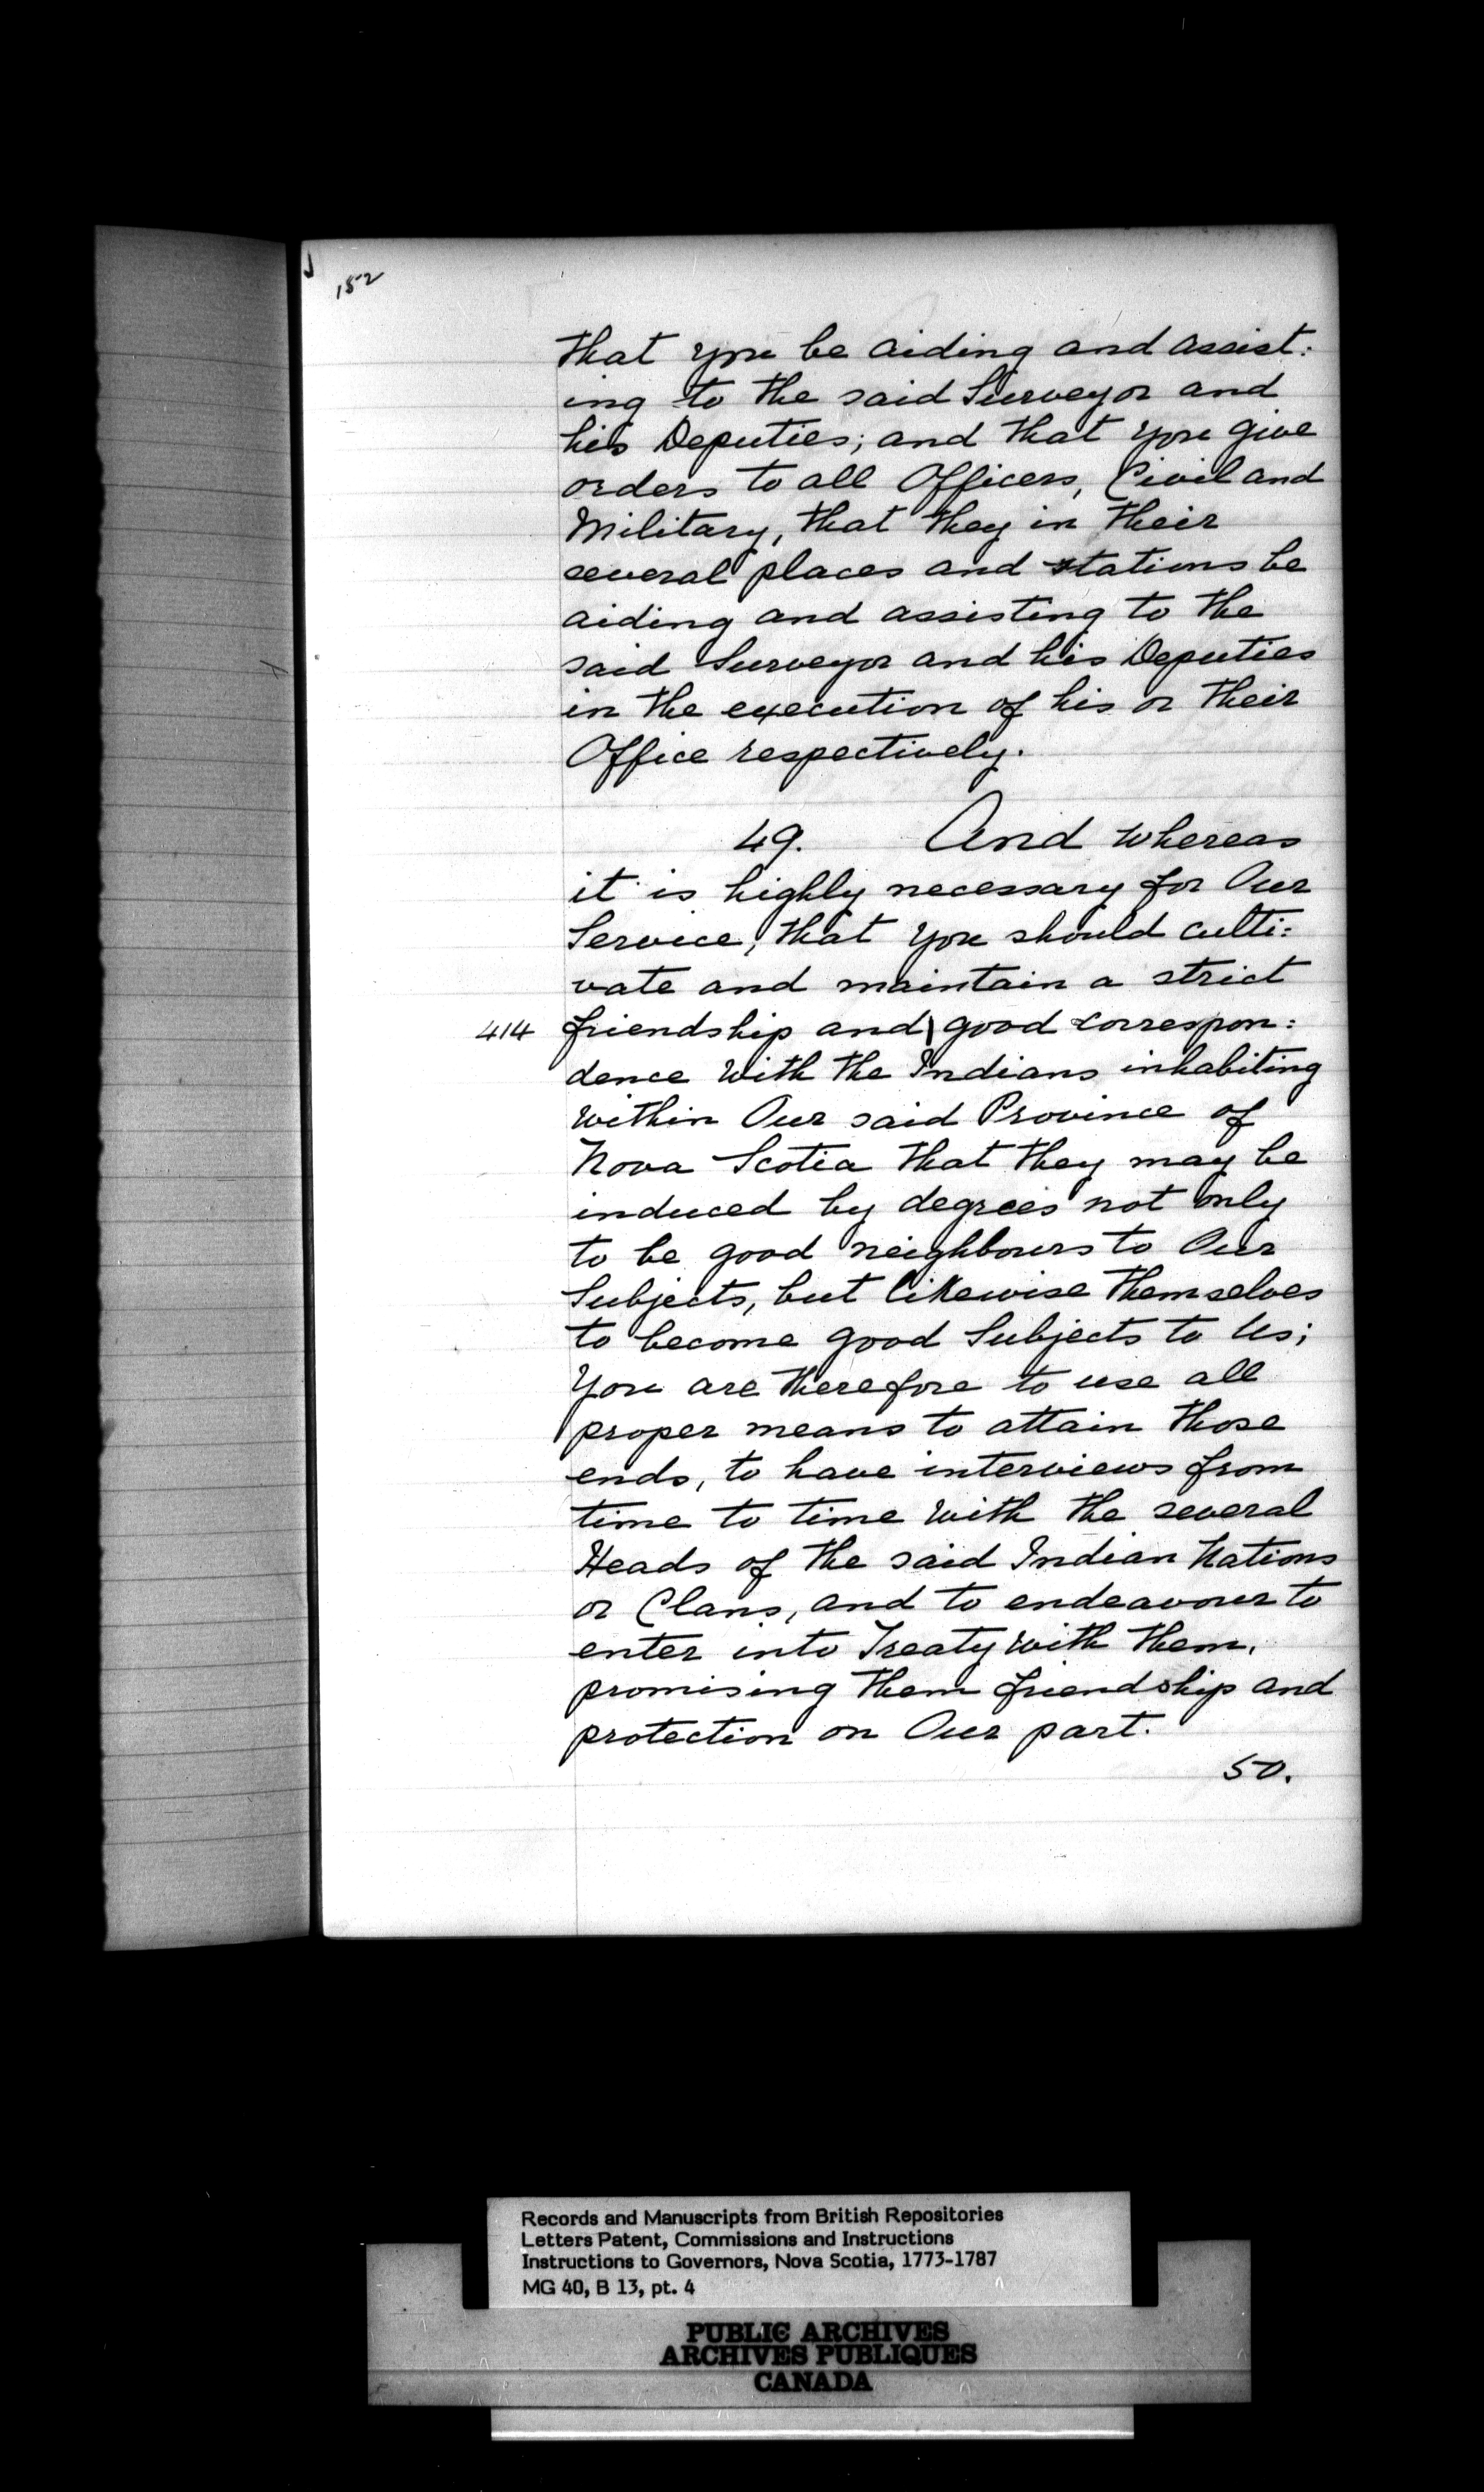 152
that you be aiding and assist:
ing to the said Surveyor and
his Deputies; and that you give
orders to all Officers, Civil and
Military, that they in their
several places and stations be
aiding and assisting to the
said Surveyor and his Deputies
in the execution of his or their
Office respectively.
49. And whereas
it is highly necessary for Our
Service, that you should culti:
vate and maintain a strict
414 friendship and \ good correspon:
dence with the Indians inhabiting
within Our said Province of
Nova Scotia that they may be
induced by degrees not only
to be good neighbours to Our
Subjects, but likewise themselves
to become good Subjects to Us;
You are therefore to use all
proper means to attain those
ends, to have interviews from
time to time with the several
Heads of the said Indian Nations
or Clans, and to endeavour to
enter into Treaty with them,
promising them friendship and
protection on Our part.
50.
Records and Manuscripts from British Repositories
Letters Patent, Commissions and Instructions
Instructions to Governors, Nova Scotia, 1773-1787
MG 40, B 13, pt. 4
PUBLIC ARCHIVES
ARCHIVES PUBLIQUES
CANADA